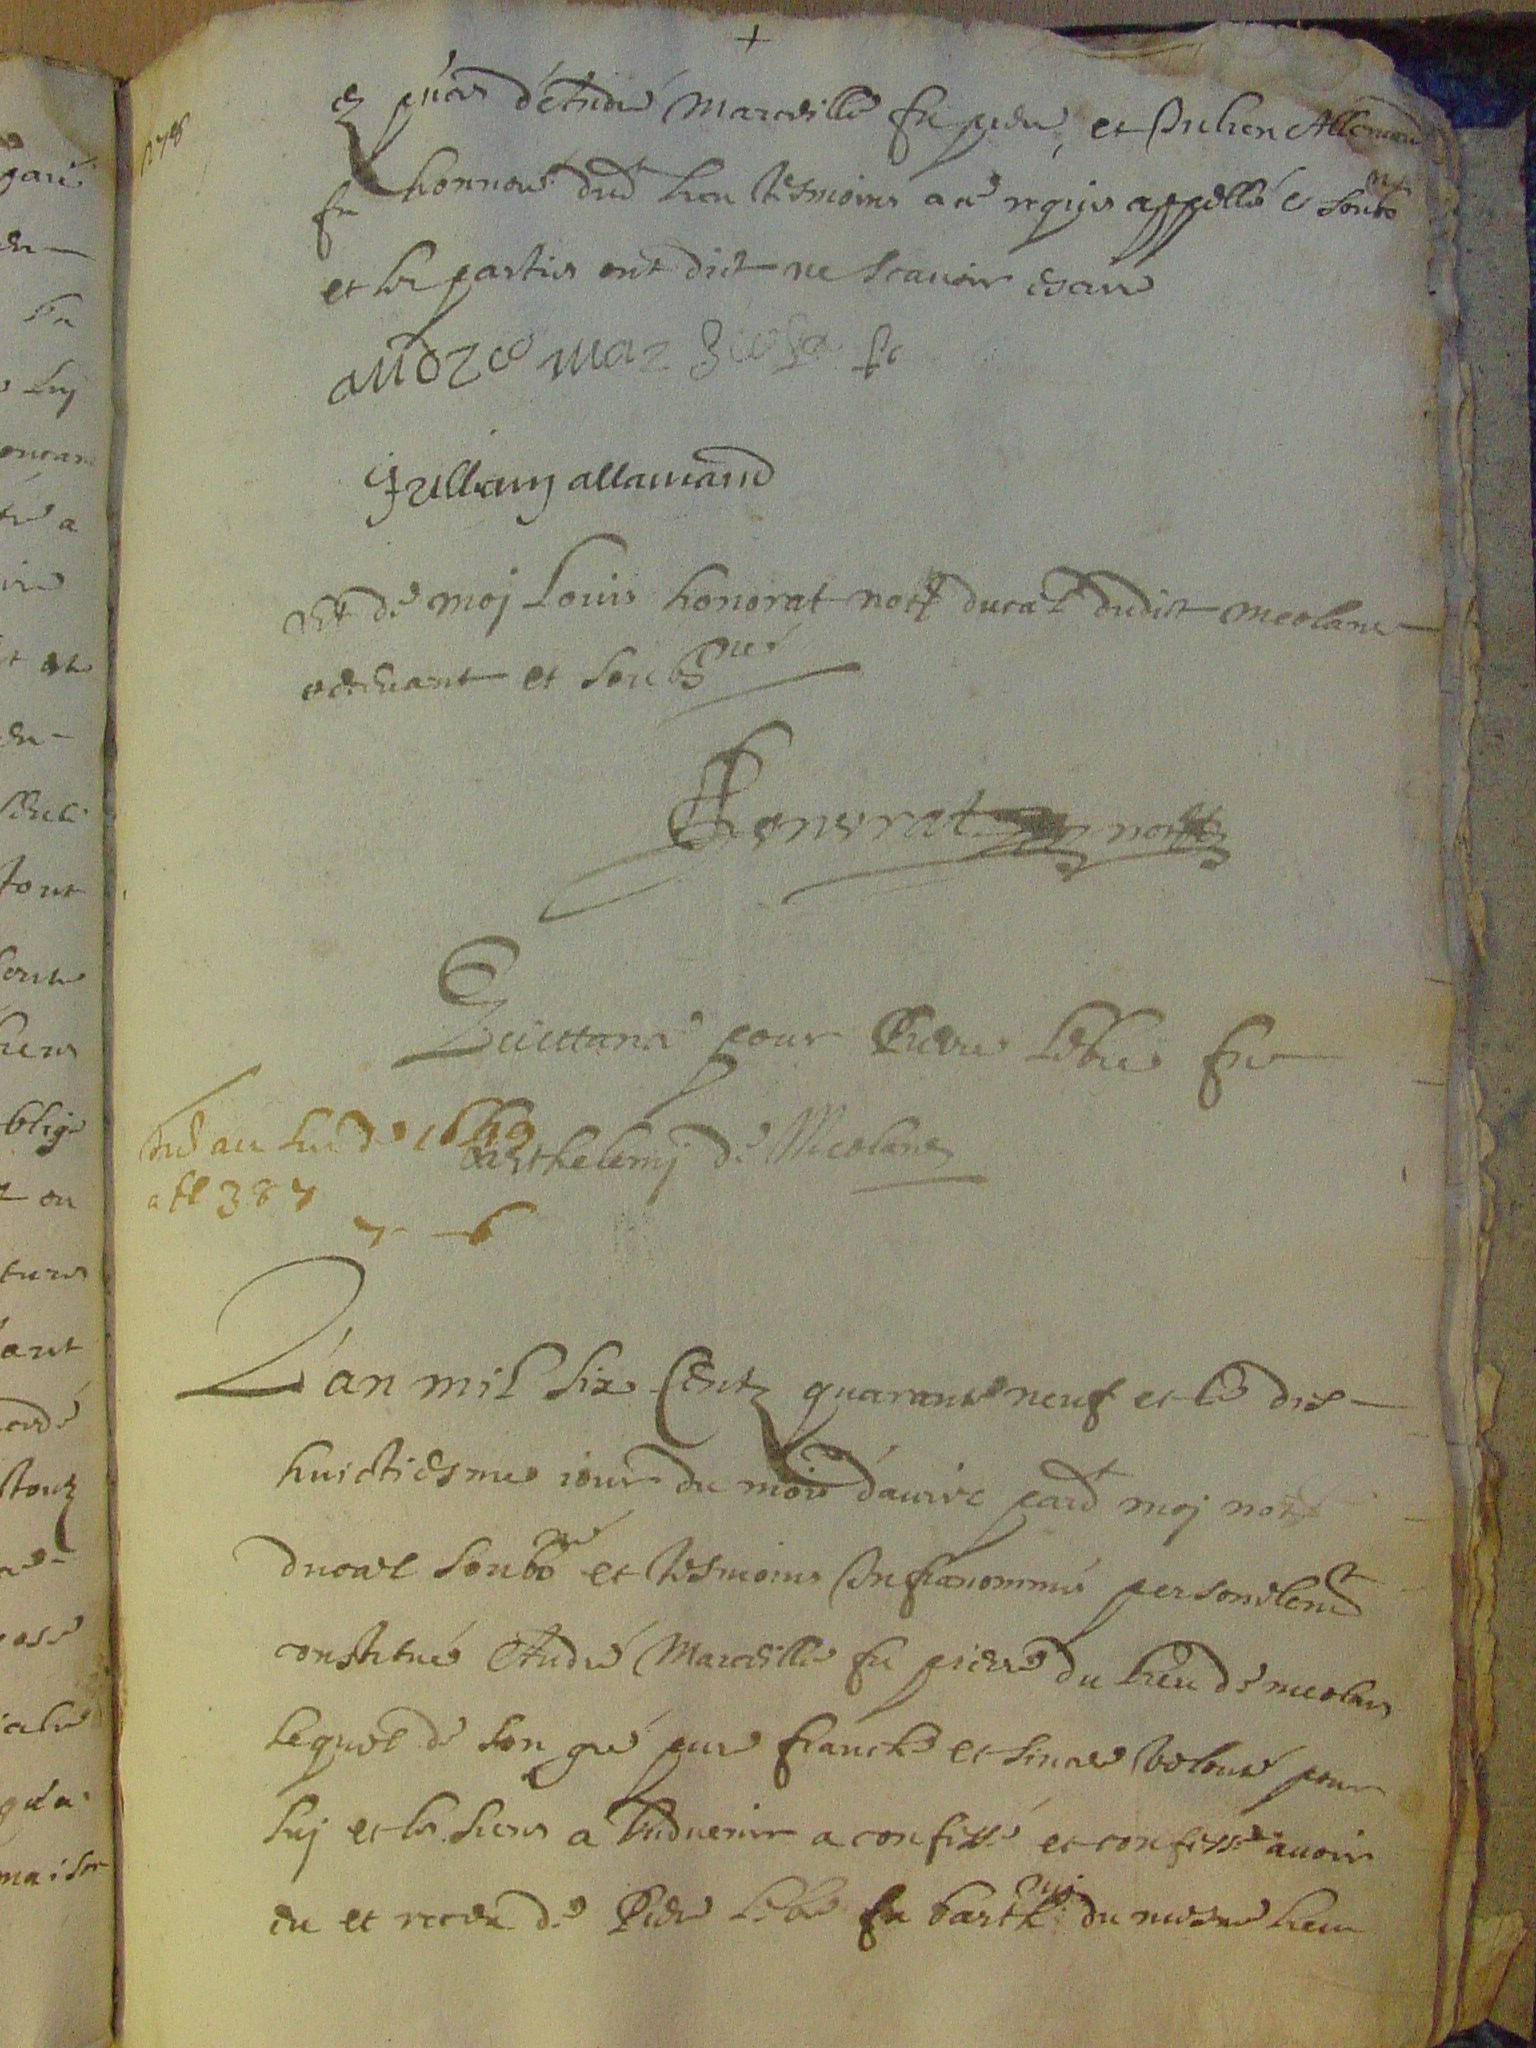 +
278
es pñces d'André Marceille fu pierre, et Julien Allemand
fu honnoré dud lieu tesmoins a ce requis appellé et soubz nes
et les parties ont dict ne scauoir escrire
andreo mar
Jullian allamand
Et de moj Louis honorat nott ducal dudict meolans
recevant et soubz né
Honorat nott
Quictance pour Pierre Lebre fu
Barthelemj de Meolans
au de 1649
a fl 387
L'an mil six Centz quarante neuf et le dix
huictiesme iour du mois d'auril pard moj nott
ducal soubz né et tesmoins Infranommés personelemt
constitué André Marceille fu pierre du lieu de meolans
lequel de son gré pure franche et sincere volonté pour
luj et les siens a l'aduenir a confessé et confesse auoir
eu et receu de Pierre Lebre fu barthmj du mesme lieu
gari
en
luj
tre a
tout
siens
oblige
ou
tant
toutz
maison